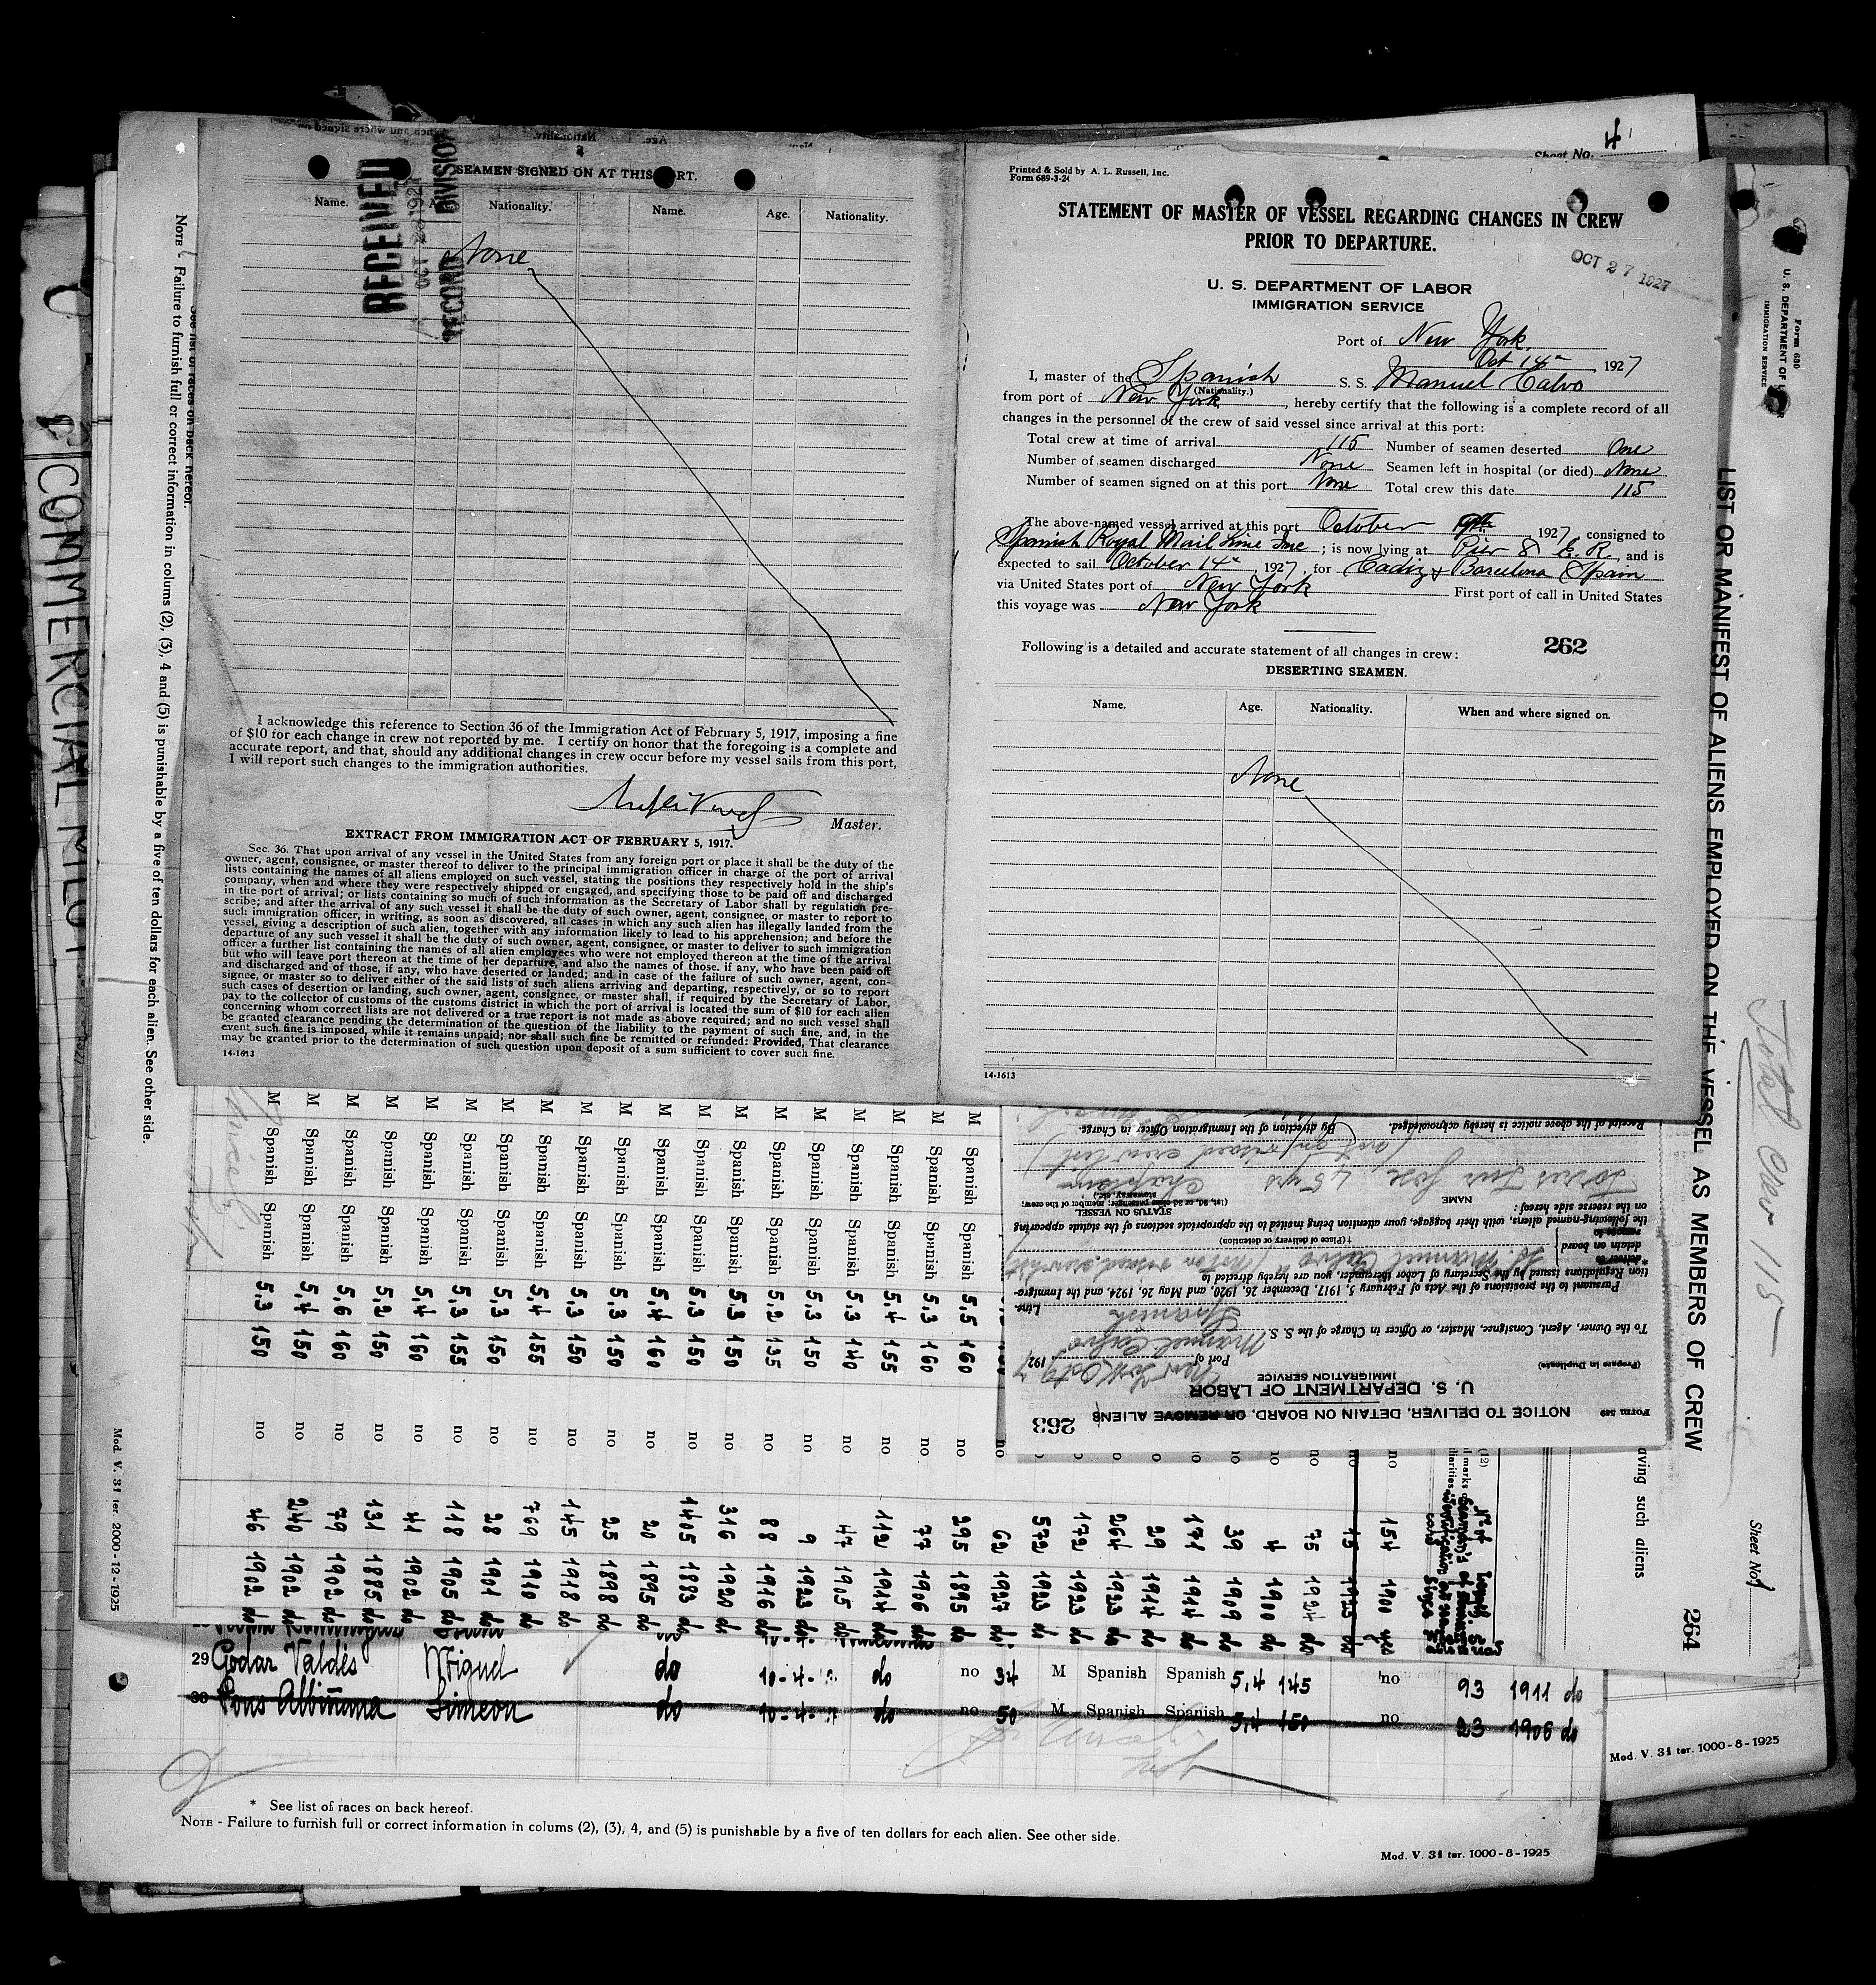 Sheet No. 4
SEAMEN SIGNED ON AT THIS PORT.
Name. Age. Nationality. Name. Age. Nationality.
RECEIVED
OCT
RECORD DIVISION
None
I acknowledge this reference to Section 36 of the Immigration Act of February 5, 1917, imposing a fine
of $10 for each change in crew not reported by me. I certify on honor that the foregoing is a complete and
accurate report, and that, should any additional changes in crew occur before my vessel sails from this port,
I will report such changes to the immigration authorities.
Master.
EXTRACT FROM IMMIGRATION ACT OF FEBRUARY 5, 1917.
Sec. 36. That upon arrival of any vessel in the United States from any foreign port or place it shall be the duty of the
owner, agent, consignee, or master thereof to deliver to the principal immigration officer in charge of the port of arrival
lists containing the names of all aliens employed on such vessel, stating the positions they respectively hold in the ship's
company, when and where they were respectively shipped or engaged, and specifying those to be paid off and discharged
in the port of arrival; or lists containing so much of such information as the Secretary of Labor shall by regulation pre-
scribe; and after the arrival of any such vessel it shall be the duty of such owner, agent, consignee, or master to report to
such immigration officer, in writing, as soon as discovered, all cases in which any such alien has illegally landed from the
vessel, giving a description of such alien, together with any information likely to lead to his apprehension; and before the
departure of any such vessel it shall be the duty of such owner, agent, consignee, or master to deliver to such immigration
officer a further list containing the names of all alien employees who were not employed thereon at the time of the arrival
but who will leave port thereon at the time of her departure, and also the names of those, if any, who have been paid off
and discharged and of those, if any, who have deserted or landed; and in case of the failure of such owner, agent, con-
signee, or master so to deliver either of the said lists of such aliens arriving and departing, respectively, or so to report
such cases of desertion or landing, such owner, agent, consignee, or master shall, if required by the Secretary of Labor,
pay to the collector of customs of the customs district in which the port of arrival is located the sum of $10 for each alien
concerning whom correct lists are not delivered or a true report is not made as above required; and no such vessel shall
be granted clearance pending the determination of the question of the liability to the payment of such fine, and, in the
event such fine is imposed, while it remains unpaid; nor shall such fine be remitted or refunded: Provided, That clearance
may be granted prior to the determination of such question upon deposit of a sum sufficient to cover such fine.
14-1613
Printed & Sold by A. L. Russell, Inc.
Form 689-3-24
STATEMENT OF MASTER OF VESSEL REGARDING CHANGES IN CREW
PRIOR TO DEPARTURE.
OCT 27 1927
U. S. DEPARTMENT OF LABOR
IMMIGRATION SERVICE
Port of New York.
Oct 14th 1927
I, master of the Spanish S. S. Manuel Calvo
(Nationality.)
from port of New York, hereby certify that the following is a complete record of all
changes in the personnel of the crew of said vessel since arrival at this port:
Total crew at time of arrival 115 Number of seamen deserted One
Number of seamen discharged None Seamen left in hospital (or died) None
Number of seamen signed on at this port None Total crew this date 115
The above-named vessel arrived at this port October 9th 1927 consigned to
Spanish Royal Mail Line Inc; is now lying at Pier 8 E. R., and is
expected to sail October 14th 1927, for Cadiz & Barcelona Spain
via United States port of New York First port of call in United States
this voyage was New York
Following is a detailed and accurate statement of all changes in crew: 262
DESERTING SEAMEN.
Name. Age. Nationality. When and where signed on.
None
14-1613
Form 680
U. S. DEPARTMENT OF LABOR
IMMIGRATION SERVICE
LIST OR MANIFEST OF ALIENS EMPLOYED ON THE VESSEL AS MEMBERS OF CREW
Total Crew 115
Sheet No. 1
264
aving such aliens
COMMERCIAL
See list of races on back hereof.
NOTE - Failure to furnish full or correct information in colums (2), (3), 4 and (5) is punishable by a five of ten dollars for each alien. See other side.
Mod. V. 31 ter. 2000-12-1925
Form 559
263
NOTICE TO DELIVER, DETAIN ON BOARD, OR REMOVE ALIENS
U. S. DEPARTMENT OF LABOR
IMMIGRATION SERVICE
(Prepare in Duplicate)
Port of New York Oct 9 1927
To the Owner, Agent, Consignee, Master, or Officer in Charge of the S. S. Manuel Calvo
Spanish Line.
Pursuant to the provisions of the Acts of February 5, 1917, December 26, 1920, and May 26, 1924, and the Immigra-
tion Regulations issued by the Secretary of Labor thereunder, you are hereby directed to
* deliver to
detain on board
remove to
SS. Manuel Calvo
† (Place of delivery or detention)
the following-named aliens, with their baggage, your attention being invited to the appropriate sections of the statute appearing
on the reverse side hereof:
NAME STATUS ON VESSEL
(1st, 2d, or 3d class passenger, member of the crew, stowaway, etc.)
Torres Luis Jose 45 yrs Chaplain
(not on visaed crew list)
By direction of the Immigration Officer in Charge.
Receipt of the above notice is hereby acknowledged.
M Spanish Spanish 5,5 160 no 295 1895 do
M Spanish Spanish 5,3 160 no 77 1906 do
M Spanish Spanish 5,4 155 no 112 1914 do
M Spanish Spanish 5,3 140 no 47 1905 do
M Spanish Spanish 5,3 150 no 9 1923 do
M Spanish Spanish 5,2 135 no 88 1916 do
M Spanish Spanish 5,3 150 no 316 1920 do
M Spanish Spanish 5,3 150 no 1405 1883 do
M Spanish Spanish 5,4 160 no 20 1895 do
M Spanish Spanish 5,3 150 no 25 1898 do
M Spanish Spanish 5,3 150 no 145 1918 do
M Spanish Spanish 5,4 155 no 769 1910 do
M Spanish Spanish 5,3 150 no 28 1901 do
M Spanish Spanish 5,3 155 no 118 1905 do
M Spanish Spanish 5,4 160 no 41 1902 do
M Spanish Spanish 5,2 150 no 131 1885 do
M Spanish Spanish 5,6 160 no 79 1902 do
M Spanish Spanish 5,4 150 no 240 1902 do
M Spanish Spanish 5,3 150 no 46 1902 do
29 Godar Valdés Miguel do 10-4- do no 34 M Spanish Spanish 5,4 145 no 93 1911 do
30 Pons Albiñana Simeon do 10-4- do no 50 M Spanish Spanish 5,4 150 no 23 1906 do
* See list of races on back hereof.
NOTE - Failure to furnish full or correct information in colums (2), (3), 4, and (5) is punishable by a five of ten dollars for each alien. See other side.
Mod. V. 31 ter. 1000-8-1925
Mod. V. 31 ter. 1000-8-1925